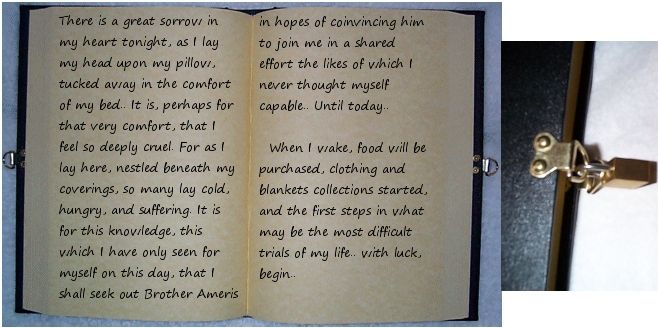 There is a great sorrow in
my heart tonight, as I lay
my head upon my pillow,
tucked away in the comfort
of my bed.. It is, perhaps for
that very comfort, that I
feel so deeply cruel. For as I
lay here, nestled beneath my
coverings, so many lay cold,
hungry, and suffering. It is
for this knowledge, this
which I have only seen for
myself on this day, that I
shall seek out Brother Ameris
in hopes of coinvincing him
to join me in a shared
effort the likes of which I
never thought myself
capable.. Until today..
When I wake, food will be
purchased, clothing and
blankets collections started,
and the first steps in what
may be the most difficult
trials of my life.. with luck,
begin..